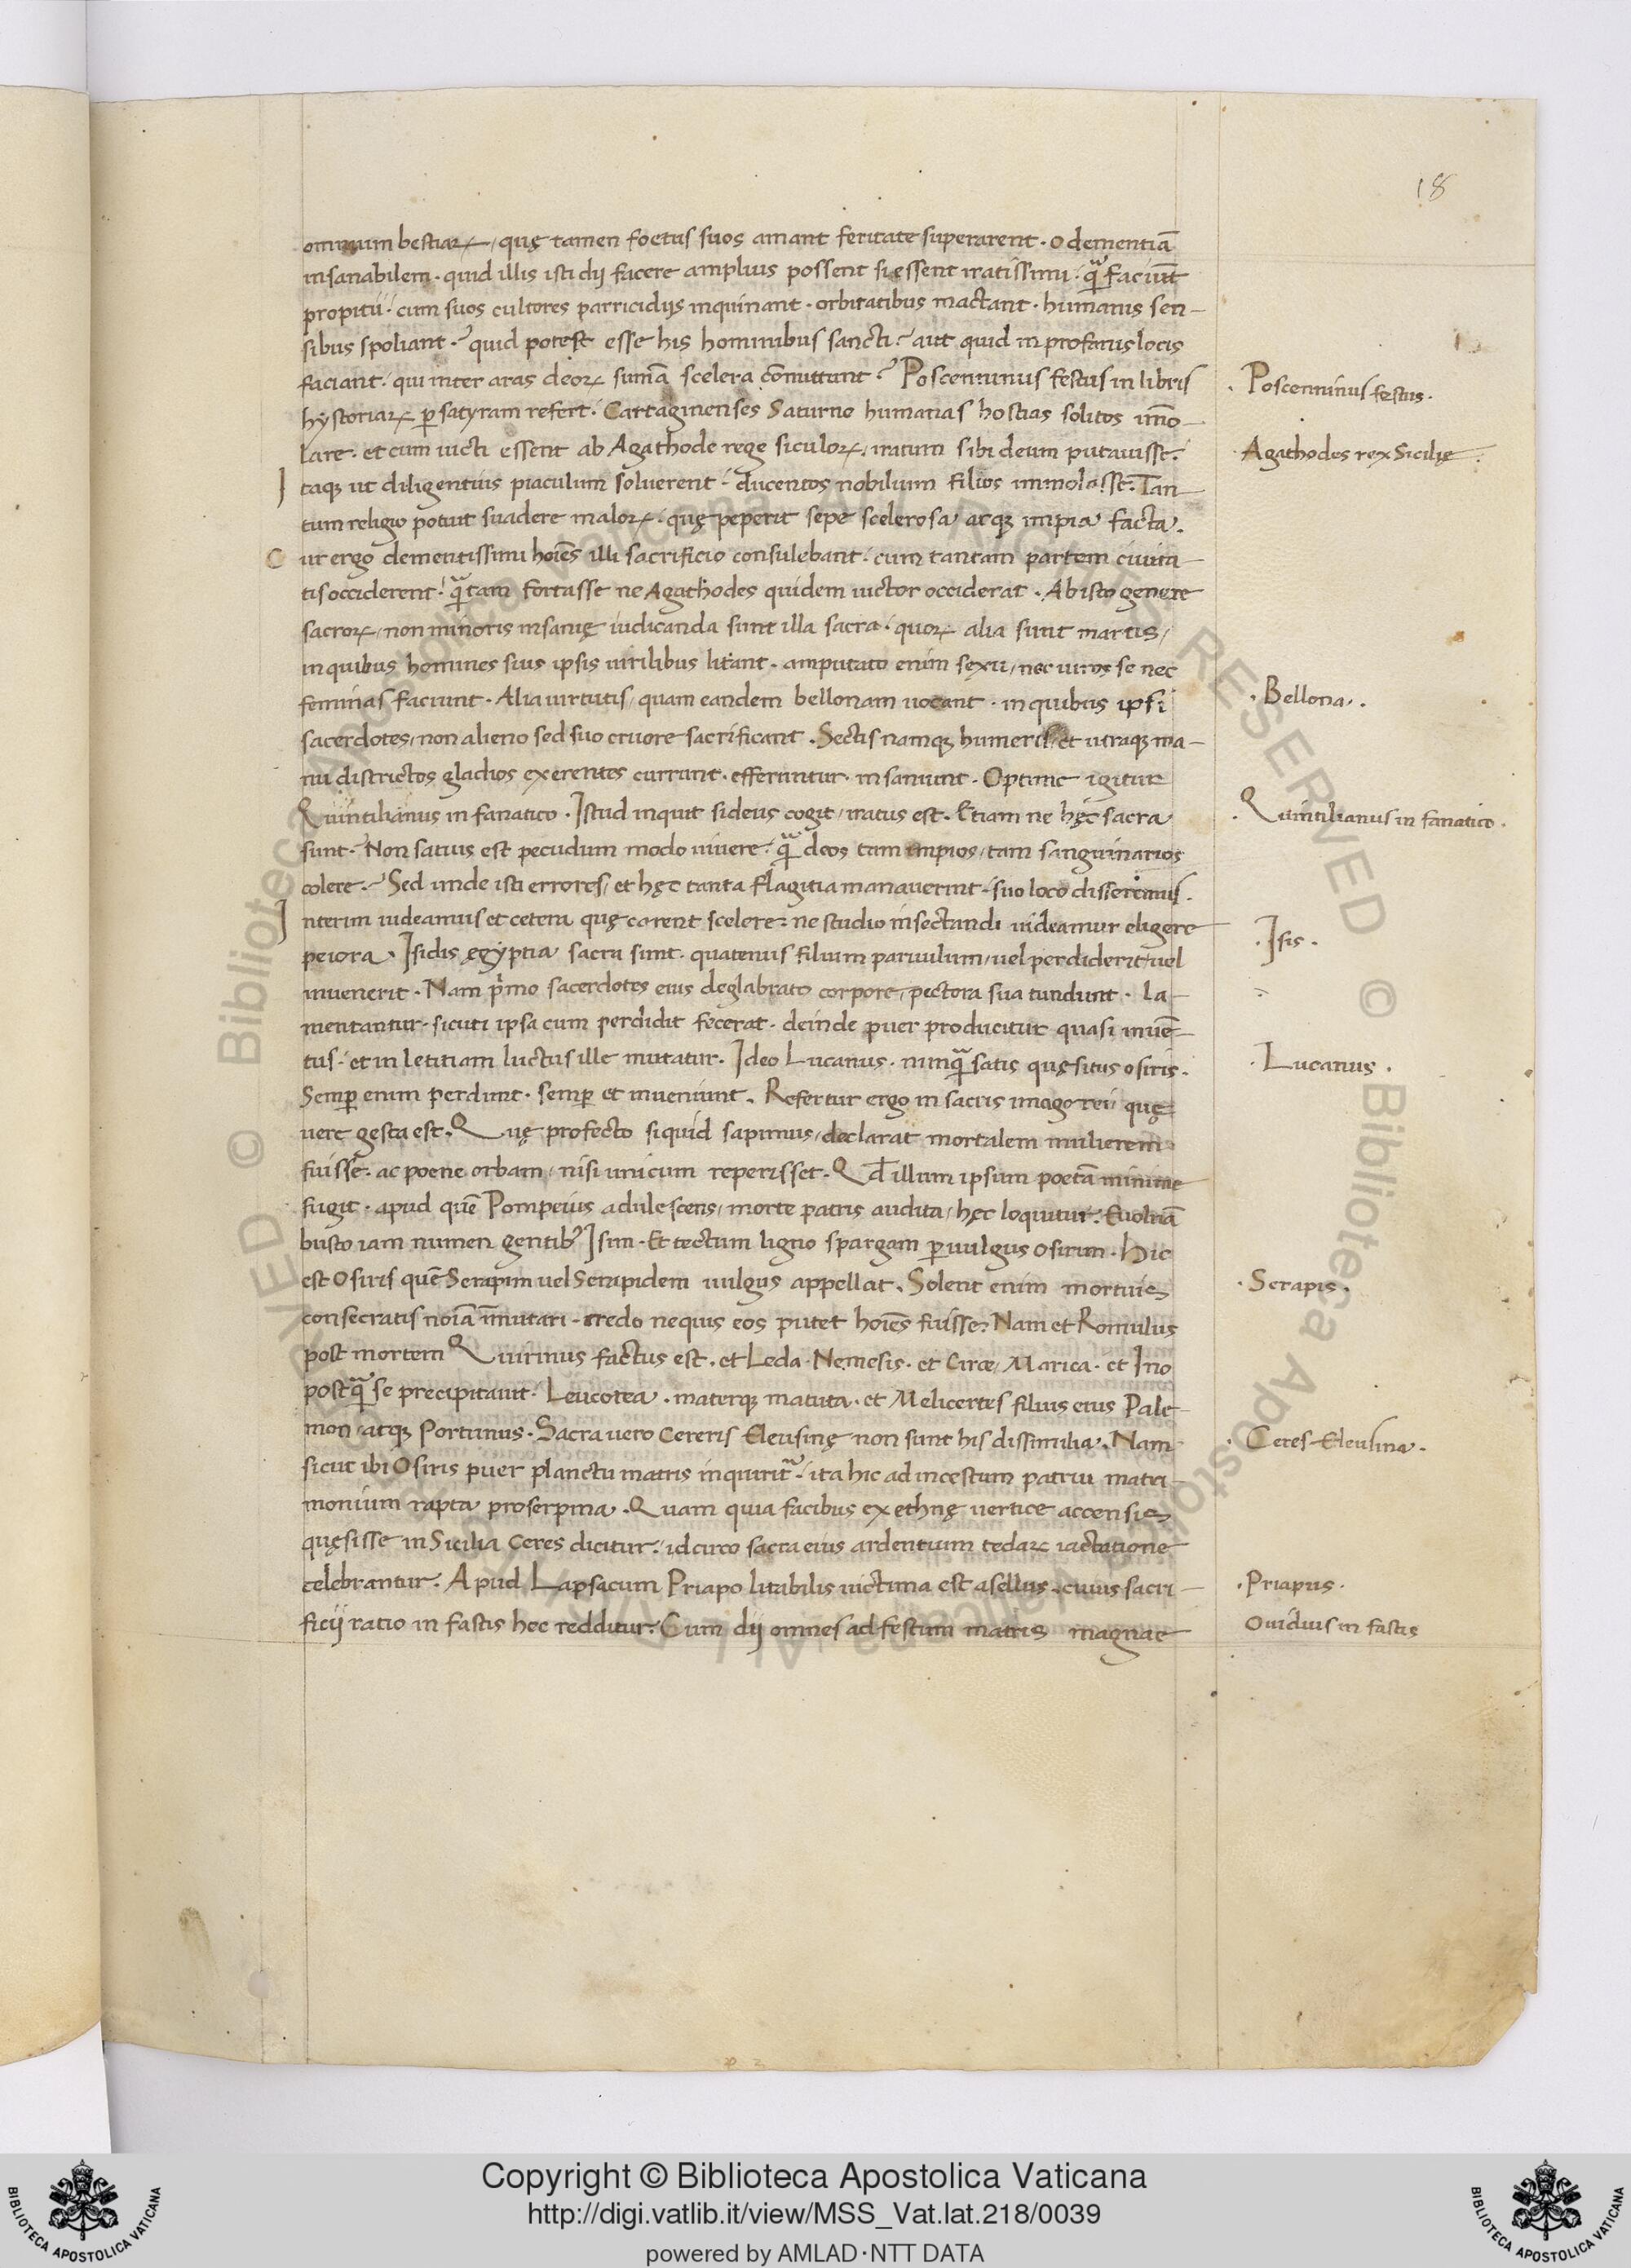 18
omnium bestiaꝝ, quę tamen foetus suos amant feritate superarent. o dementiā
insanabilem. quid illis isti dij facere amplius possent si essent iratissimi. qᷓ faciūt
propitii. cum suos cultores parricidijs inquinant. orbitatibus mactant. humanis sen-
sibus spoliant. quid potest esse his hominibus sancti? aut quid in profanis locis
faciant. qui inter aras deoꝝ sum̄a scelera com̄ittunt? Poscenninus festus in libris
hystoriaꝝ ꝑ satyram refert. Cartaginenses Saturno humanas hostias solitos im̄o-
lare. et cum uicti essent ab Agathode rege siculoꝝ, iratum sibi deum putauisse.
Itaqꝫ ut diligentius piaculum soluerent. ducentos nobilium filios immolasse. Tan-
tum religio potuit suadere maloꝝ. quę peperit sepe scelerosa atqꝫ impia facta.
Cur ergo dementissimi hoīes illi sacrificio consulebant. cum tantam partem ciuita-
tis occiderent. qᷓtam fortasse ne Agathodes quidem uictor occiderat. Ab isto genere
sacroꝝ, non minoris insanię iudicanda sunt illa sacra. quoꝝ alia sunt martis,
in quibus homines suis ipsis uirilibus litant. amputato enim sexu, nec uiros se nec
feminas faciunt. Alia uirtutis, quam eandem bellonam uocant. in quibus ipsi
sacerdotes, non alieno sed suo cruore sacrificant. Sectis namqꝫ humeris, et utraqꝫ ma-
nu districtos gladios exerentes currunt. efferuntur. insaniunt. Optime igitur
Quintilianus in fanatico. Istud inquit si deus cogit, iratus est. Etiam ne hęc sacra
sunt. Non satius est pecudum modo uiuere. qᷓ deos tam impios, tam sanguinarios
colere. Sed unde isti errores, et hęc tanta flagitia manauerint. suo loco disseremus.
Interim uideamus et cetera quę carent scelere. ne studio insectandi uideamur eligere
peiora. Isidis ęgyptia sacra sunt. quatenus filium paruulum, uel perdiderit, uel
inuenerit. Nam pͥmo sacerdotes eius deglabrato corpore, pectora sua tundunt. La-
mentantur. sicuti ipsa cum perdidit fecerat. deinde puer producitur quasi inuē-
tus. et in letitiam luctus ille mutatur. Ideo Lucanus. nunqᷓ satis quęsitus osiris.
Semꝑ enim perdunt. semꝑ et inueniunt. Refertur ergo in sacris imago rei, quę
uere gesta est. Quę profecto siquid sapimus, declarat mortalem mulierem
fuisse. ac poene orbam, nisi unicum reperisset. Qđ illum ipsum poetā minime
fugit. apud quē Pompeius adulescens, morte patris audita, hęc loquitur. Euoluā
busto iam numen gentibꝰ Isim. Et tectum ligno spargam ꝑ uulgus osirim. Hic
est Osiris quē Serapim uel Serapidem uulgus appellat. Solent enim mortuis
consecratis noīa im̄utari. credo nequis eos putet hoīes fuisse. Nam et Romulus
post mortem Quirinus factus est. et Leda. Nemesis. et Circe, Marica. et Ino
postqᷓ se precipitauit. Leucotea. materqꝫ matuta. et Melicertes filius eius Pale-
mon, atqꝫ Portunus. Sacra uero Cereris Eleusinę non sunt his dissimilia. Nam
sicut ibi Osiris puer planctu matris inquiritᷓ. ita hic ad incestum patrui matri-
monium rapta proserpina. Quam quia facibus ex ethnę uertice accensis
quęsisse in Sicilia Ceres dicitur. idcirco sacra eius ardentium tedaꝝ iactatione
celebrantur. Apud Lapsacum Priapo litabilis uictima est asellus. cuius sacri-
ficij ratio in fastis hec redditur. Cum dij omnes ad festum matris magnae
. Poscenninus festus.
Agathodes rex Sicilię.
. Bellona.
. Quintilianus in fanatico.
. Isis.
. Lucanus.
. Serapis.
. Ceres Eleusina.
. Priapus.
Ouidius in fastis
© Biblioteca Apostolica Vaticana ALL RIGHTS RESERVED
Copyright © Biblioteca Apostolica Vaticana
http://digi.vatlib.it/view/MSS_Vat.lat.218/0039
powered by AMLAD·NTT DATA
BIBLIOTECA APOSTOLICA VATICANA
BIBLIOTECA APOSTOLICA VATICANA